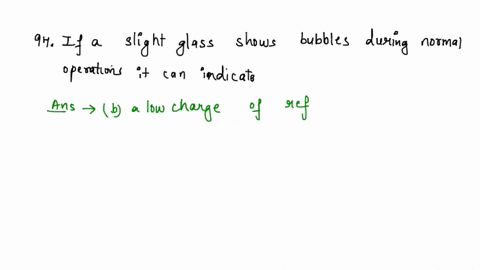 94. If a slight glass shows bubbles during normal
operations it can indicate
Ans → (b) a low charge of ref